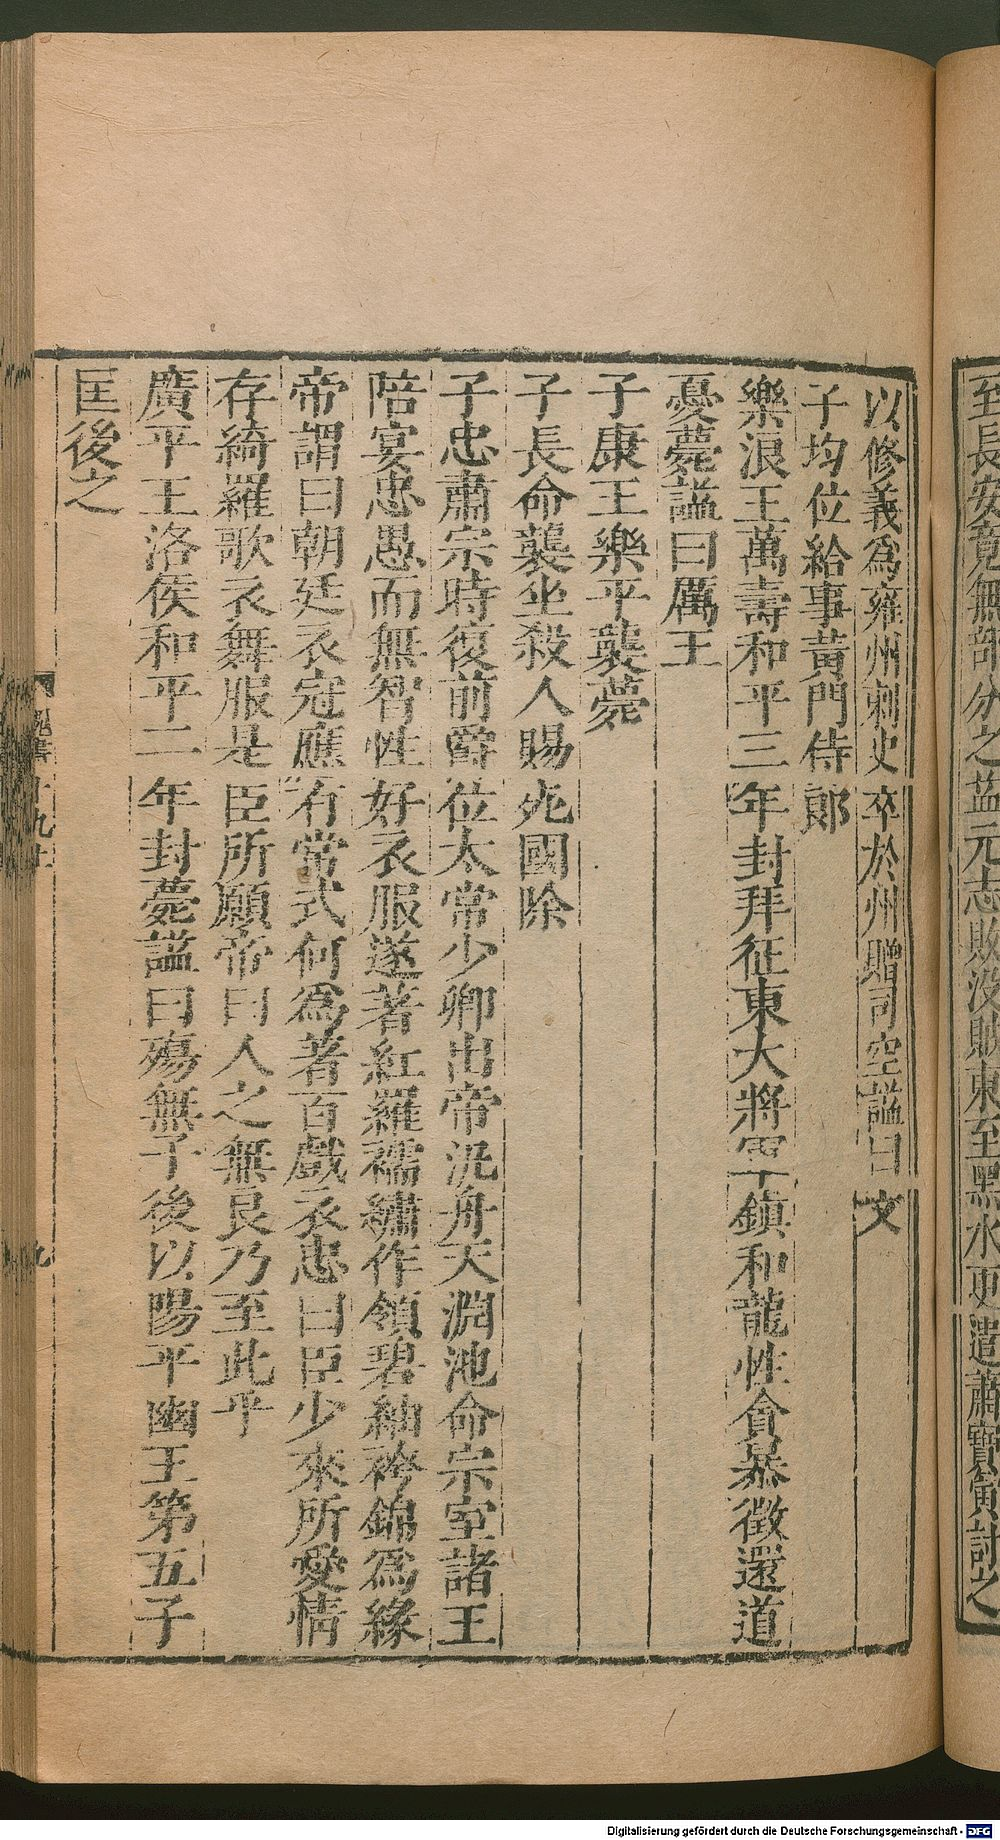 至長安竟無部分之益元志敗没賊東至黑水更遣蕭寶寅討之
以修義爲雍州刺史卒於州贈司空謚曰文
子均位給事黃門侍郎
樂浪王萬壽和平三年封拜征東大將軍鎮和龍性貪暴徵還道
憂薨謚曰厲王
子康王樂平襲薨
子長命襲坐殺人賜死國除
子忠肅宗時復前爵位太常少卿出帝汎舟天淵池命宗室諸王
陪宴忠愚而無智性好衣服遂著紅羅襦繡作領碧紬袴錦爲緣
帝謂曰朝廷衣冠應有常式何爲著百戲衣忠曰臣少來所愛情
存綺羅歌衣舞服是臣所願帝曰人之無良乃至此乎
廣平王洛侯和平二年封薨謚曰殤無子後以陽平幽王第五子
匡後之
魏書十九上
九
Digitalisierung gefördert durch die Deutsche Forschungsgemeinschaft - DFG